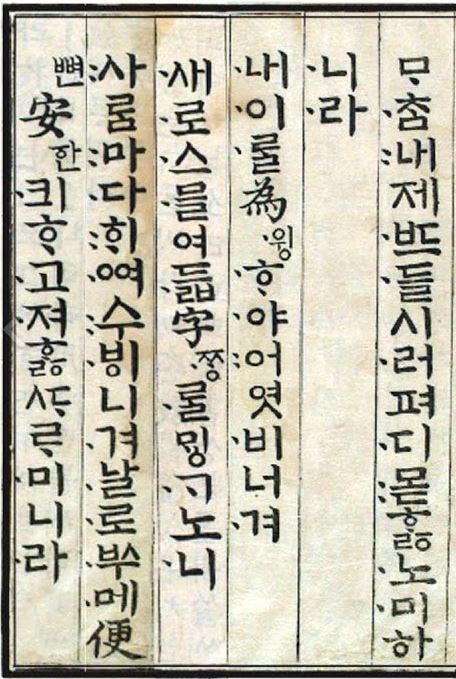 ᄆᆞ·ᄎᆞᆷ:내제·ᄠᅳ·들시·러펴·디:몯ᄒᆞᇙ·노·미하
·니·라
·내·이·ᄅᆞᆯ爲·윙·ᄒᆞ·야:어엿·비너·겨
·새·로·스·믈여·듧字·ᄍᆞᆼ·ᄅᆞᆯᄆᆡᇰ·ᄀᆞ노·니
:사ᄅᆞᆷ:마·다:ᄒᆡ·ᅇᅧ:수·ᄫᅵ니·겨·날·로·ᄡᅮ·메便
뼌安ᅙᅡᆫ·킈ᄒᆞ·고·져ᄒᆞᇙᄯᆞᄅᆞ·미니·라